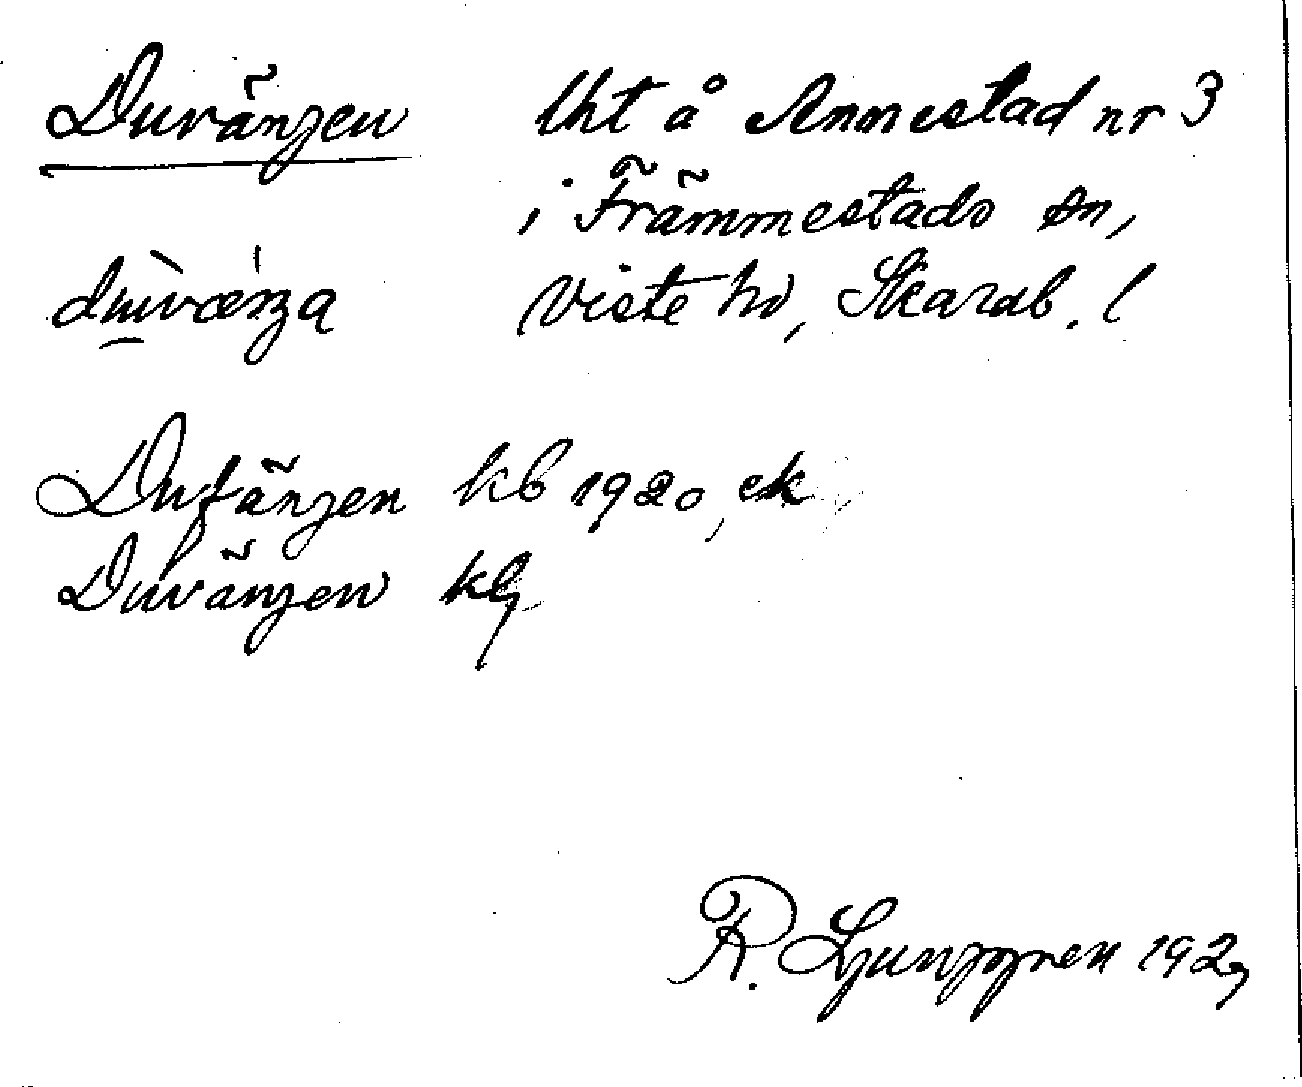 Duvängen
lht å Ammestad nr 3
i Främmestads sn,
Viste hd, Skarab. l
Dufängen kb 1920, ek
Duvängen
R. Ljunggren